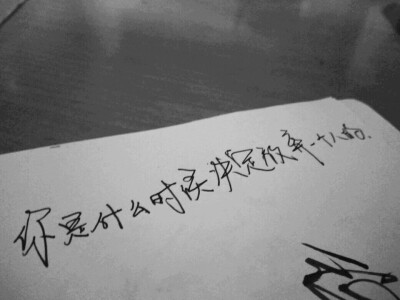 你是什么时候决定放弃一个人的.